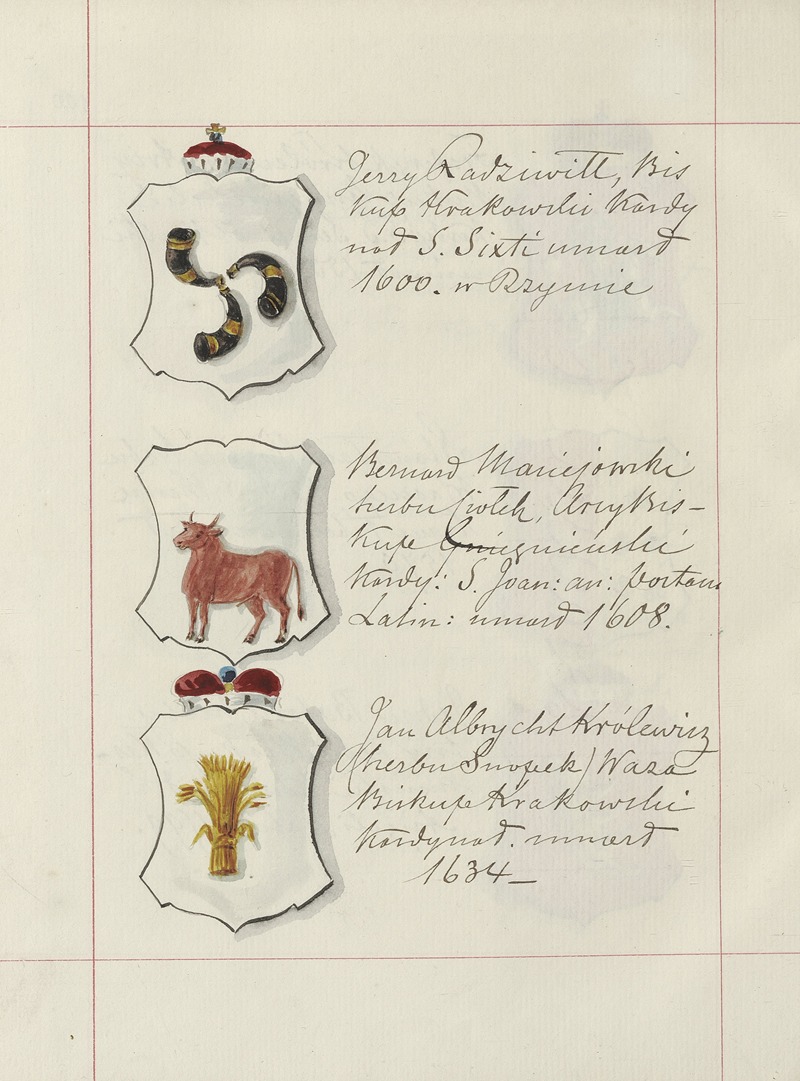 Jerzy Radziwiłł, Bis
kup Krakowski Kardy
nał S. Sixti umarł
1600. w Rzymie
Bernard Maciejowski
herbu Ciołek, ArcyBis-
kup Gnieznieński
Kardy: S. Joan: an: portam
Latin: umarł 1608.
Jan Albrycht Królewicz
(herbu Snopek) Waza
Biskup Krakowski
Kardynał. umarł
1634_